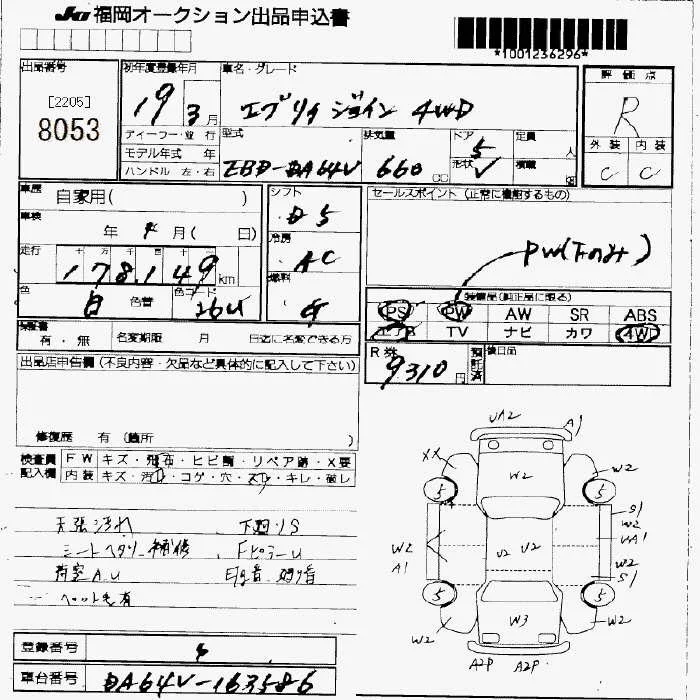 JU 福岡オークション出品申込書
*1001236296*
出品番号
[2205]
8053
初年度登録年月
19 3月
車名・グレード
エブリィ ジョイン 4WD
ディーラー・並行
モデル年式 年
ハンドル 左・右
型式
EBD-DA64V
排気量
660 cc
ドア
5
形状
定員
人
積載
kg
評価点
R
外装 内装
C C
車歴 自家用( )
車検
年 4月( 日)
走行
十 万 千 百 十
178,149 km
色 白 色替 色コード 26U
シフト
D5
冷房
AC
燃料
セールスポイント (正常に機能するもの)
PW(Fのみ)
装備品(純正品に限る)
PS PW AW SR ABS
エアB TV ナビ カワ 4WD
保証書
有・無 名変期限 月 日迄に名変できる方
R券
9310円
預託済
後日品
出品店申告欄 (不良内容・欠品など具体的に記入して下さい)
修復歴 有 (箇所 )
検査員 FW キズ・飛石・ヒビ割・リペア跡・X要
記入欄 内装 キズ・汚れ・コゲ・穴・スレ・キレ・破レ
天張汚れ 下廻りS
シートヘタリ 補修 FピラーU
荷室A.U
ペット毛有
UA2
A1
XX
W2
W2
5
5
S1
W2
UA1
W2
A1
U2
U2
W2
S1
5
5
W2
W3
W2
A2P
A2P
登録番号
車台番号 DA64V-163586